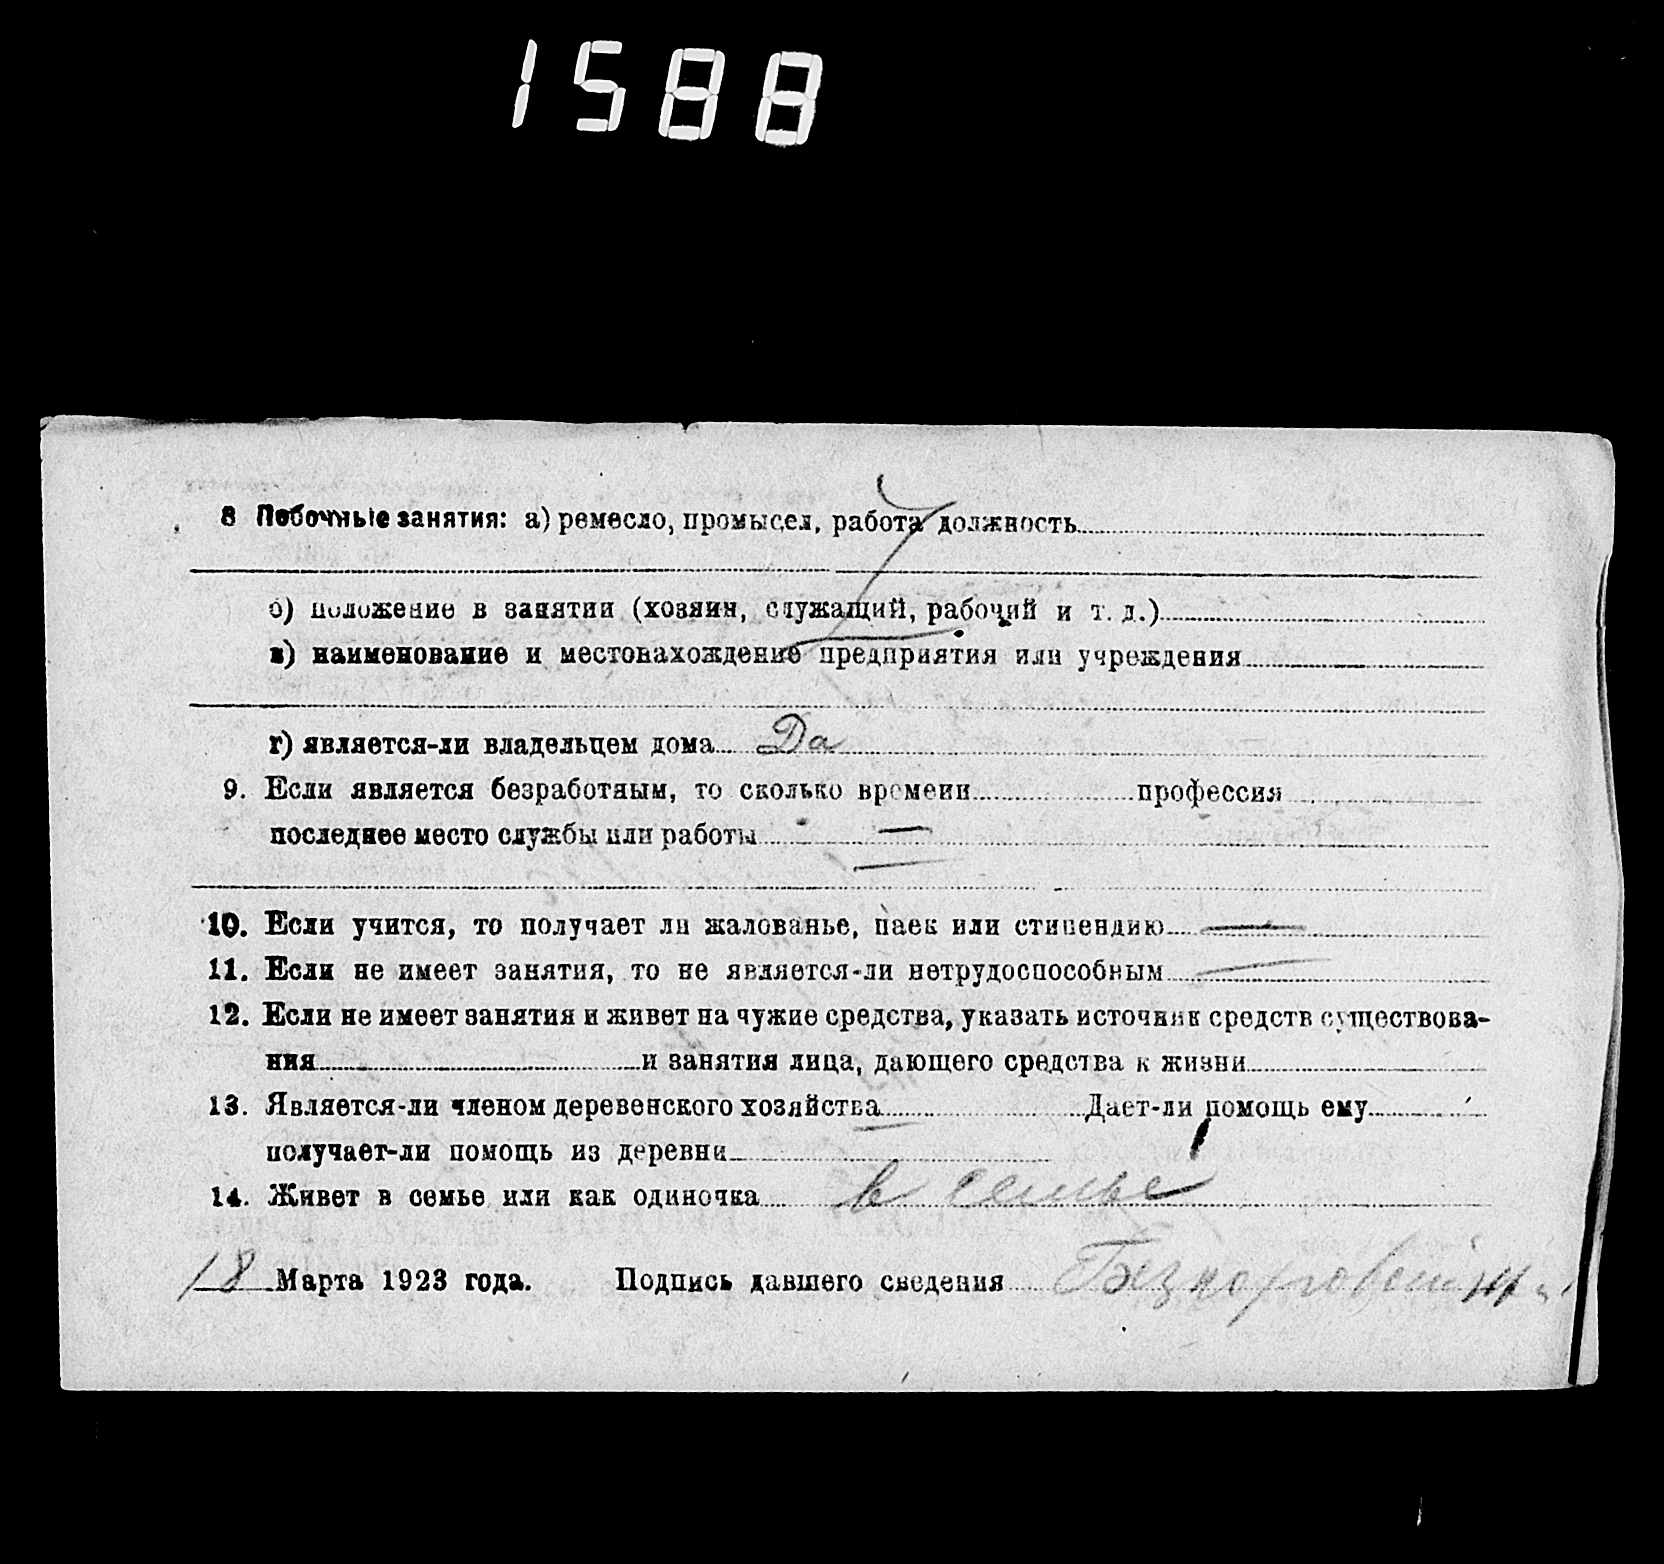 1588
8 Побочные занятия: а) ремесло, промысел, работа должность
б) положение в занятии (хозяин, служащий, рабочий и т. д.)
в) наименование и местонахождение предприятия или учреждения
г) является-ли владельцем дома Да
9. Если является безработным, то сколько времени профессия
последнее место службы или работы —
10. Если учится, то получает ли жалованье, паек или стипендию —
11. Если не имеет занятия, то не является-ли нетрудоспособным —
12. Если не имеет занятия и живет на чужие средства, указать источник средств существова-
ния и занятия лица, дающего средства к жизни
13. Является-ли членом деревенского хозяйства Дает-ли помощь ему
получает-ли помощь из деревни
14. Живет в семье или как одиночка в семье
18 Марта 1923 года. Подпись давшего сведения